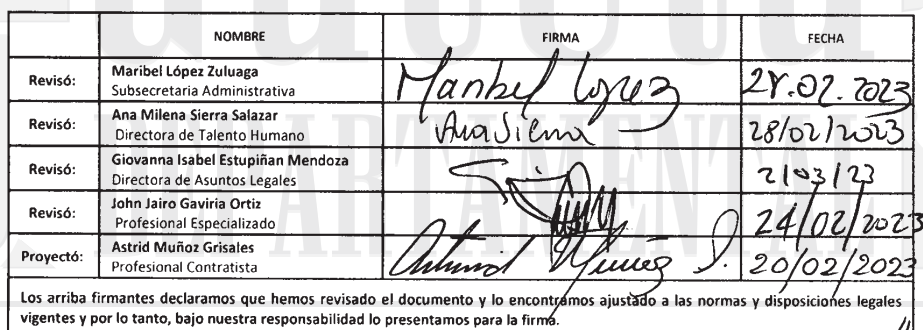 Gaceta
DEPARTAMENTAL
NOMBRE FIRMA FECHA
Revisó: Maribel López Zuluaga
Subsecretaria Administrativa Maribel López 28.02.2023
Revisó: Ana Milena Sierra Salazar
Directora de Talento Humano Ana Sierra 28/02/2023
Revisó: Giovanna Isabel Estupiñan Mendoza
Directora de Asuntos Legales 2/03/23
Revisó: John Jairo Gaviria Ortiz
Profesional Especializado 24/02/2023
Proyectó: Astrid Muñoz Grisales
Profesional Contratista Astrid Muñoz G. 20/02/2023
Los arriba firmantes declaramos que hemos revisado el documento y lo encontramos ajustado a las normas y disposiciones legales
vigentes y por lo tanto, bajo nuestra responsabilidad lo presentamos para la firma.